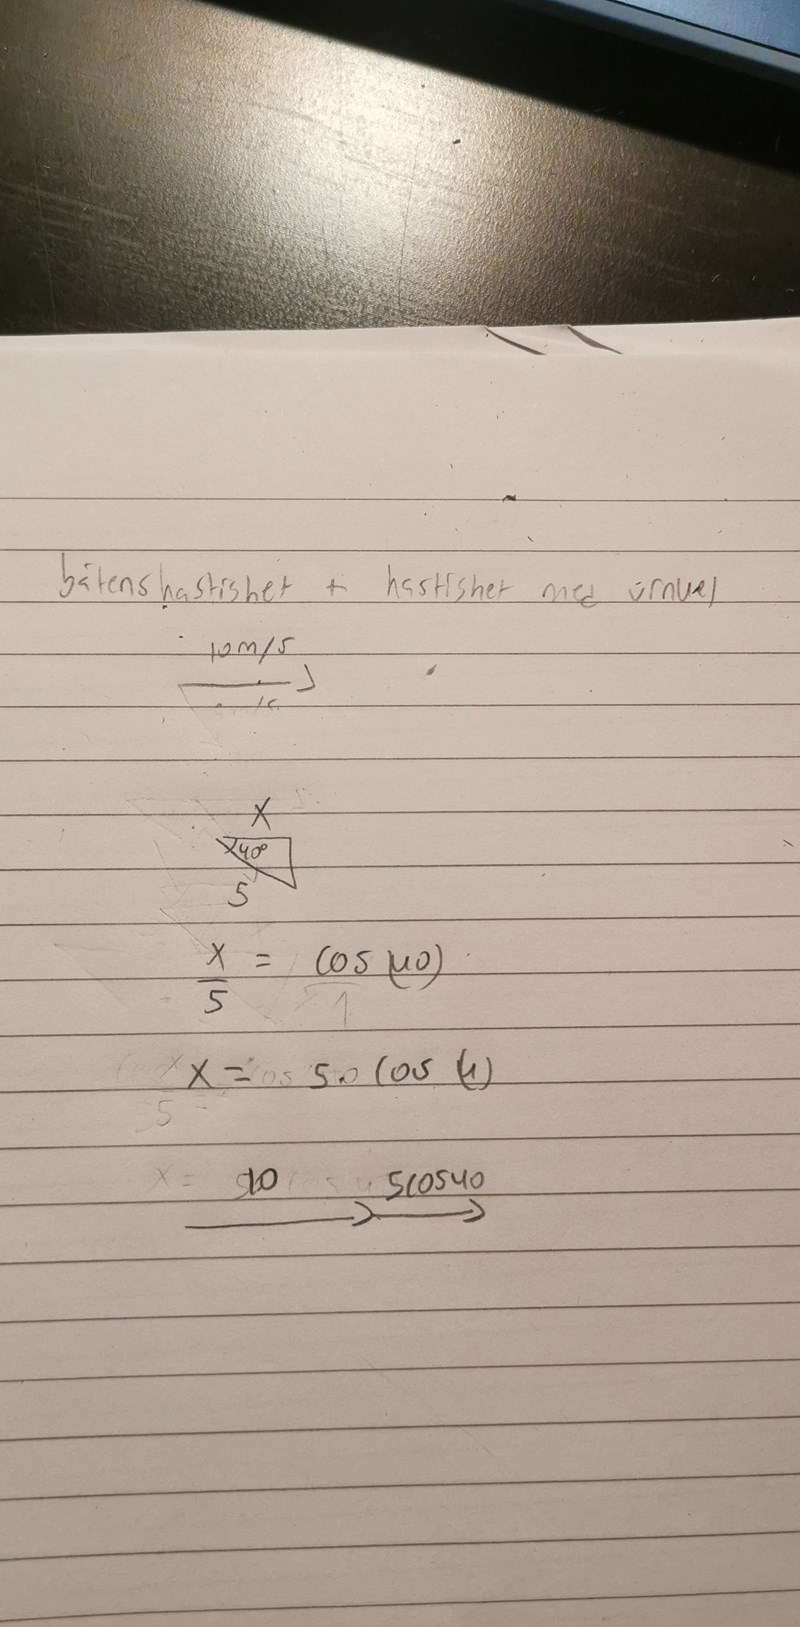 båtenshastighet + hastighet med
10m/s
X
40°
5
X/5 = cos(40)
X = 5 · cos (4)
10 5cos40